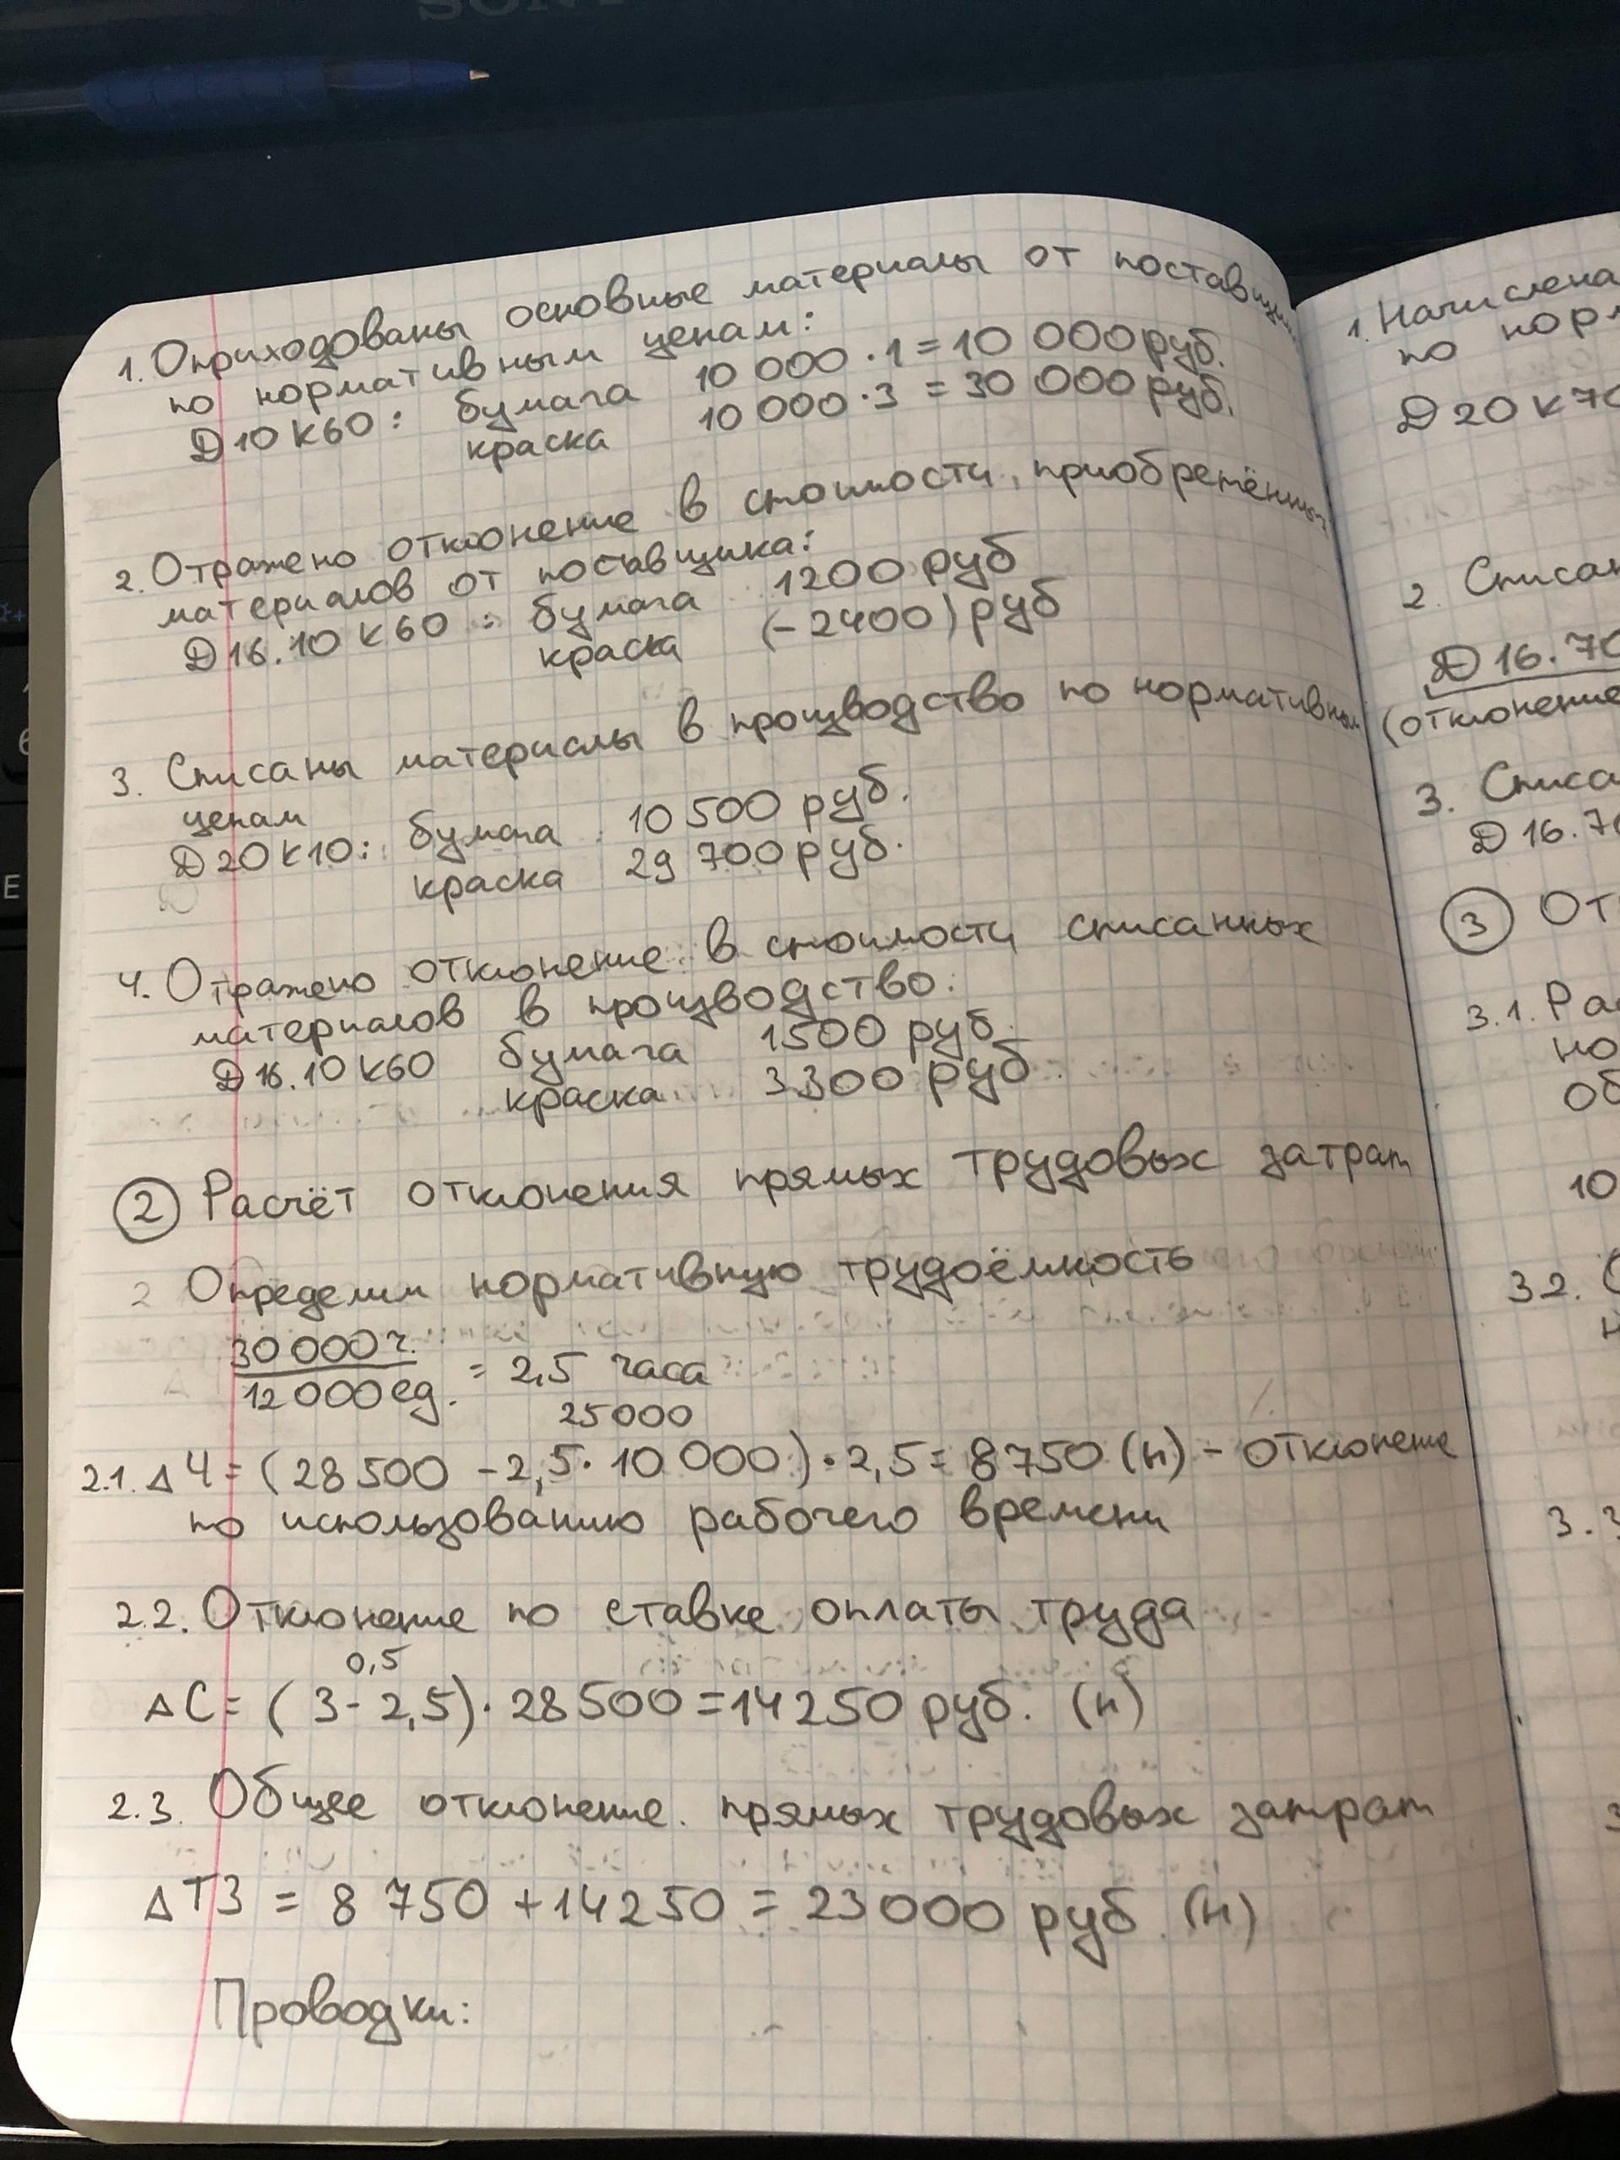 SONY
1. Оприходованы основные материалы от поставщи
по нормативным ценам:
Д10 К60: бумага 10 000 · 1 = 10 000 руб.
краска 10 000 · 3 = 30 000 руб.
2. Отражено отклонение в стоимости, приобретённых
материалов от поставщика:
Д16.10 К60 : бумага 1200 руб
краска (-2400) руб
3. Списаны материалы в производство по нормативным
ценам
Д20 К10: бумага 10 500 руб.
краска 29 700 руб.
4. Отражено отклонение в стоимости списанных
материалов в производство:
Д16.10 К60 бумага 1500 руб.
краска 3300 руб
2 Расчёт отклонения прямых трудовых затрат
2 Определим нормативную трудоёмкость
30 000 ч.
12 000 ед. = 2,5 часа
25000
2.1. ΔЧ = (28 500 - 2,5 · 10 000) · 2,5 = 8750 (н) - отклонение
по использованию рабочего времени
2.2. Отклонение по ставке оплаты труда
0,5
ΔС = (3 - 2,5) · 28 500 = 14 250 руб. (н)
2.3. Общее отклонение прямых трудовых затрат
ΔТЗ = 8 750 + 14 250 = 23 000 руб (н)
Проводки:
1. Начислена
по норм
Д 20 К 70
2. Списан
Д 16.70
(отклонение
3. Списа
Д 16.70
3 От
3.1. Ра
но
об
10
3.2.
3.3